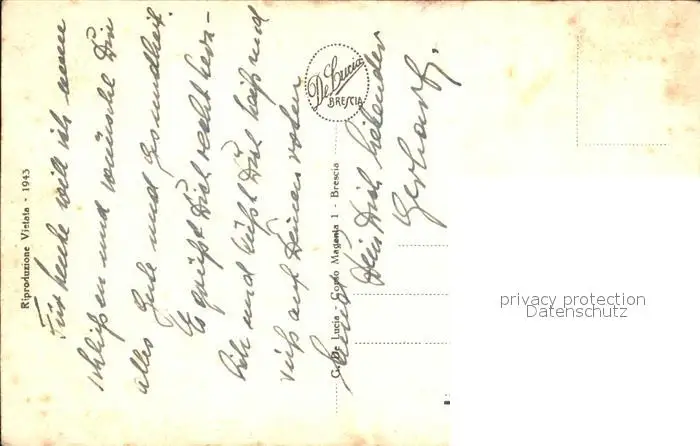 Riproduzione Vietata - 1943
Für heute will ich nun
schließen und wünsche Dir
alles Gute und Gesundheit.
Es grüßt Dich recht herz-
lich und küßt Dich heiß und
süß auf Deinen roten
Mund
Dein Dich liebender
Gerhard.
De Lucia
BRESCIA
G. De Lucia - Corso Magenta 1 - Brescia
privacy protection
Datenschutz